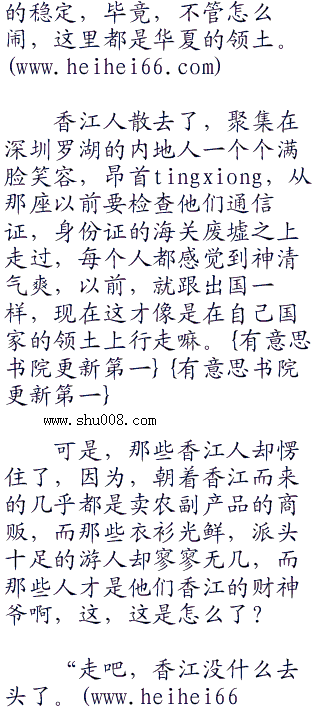 的稳定，毕竟，不管怎么
闹，这里都是华夏的领土。
(www.heihei66.com)
香江人散去了，聚集在
深圳罗湖的内地人一个个满
脸笑容，昂首tingxiong，从
那座以前要检查他们通信
证，身份证的海关废墟之上
走过，每个人都感觉到神清
气爽，以前，就跟出国一
样，现在这才像是在自己国
家的领土上行走嘛。{有意思
书院更新第一}{有意思书院
更新第一}
www.shu008.com
可是，那些香江人却愣
住了，因为，朝着香江而来
的几乎都是卖农副产品的商
贩，而那些衣衫光鲜，派头
十足的游人却寥寥无几，而
那些人才是他们香江的财神
爷啊，这，这是怎么了？
“走吧，香江没什么去
头了。(www.heihei66